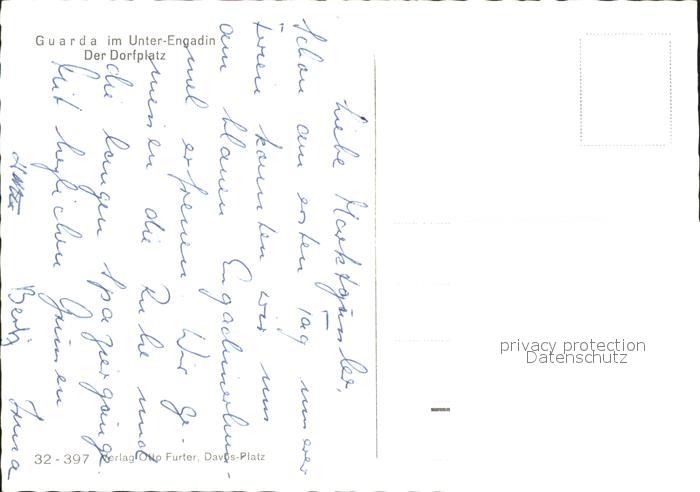 Guarda im Unter-Engadin
Der Dorfplatz
Liebe Marktgässler,
Schon am ersten Tag unserer
Ferien konnten wir uns
am blauen Engadinerhim-
mel erfreuen. Wir ge-
niessen die Ruhe und
die langen Spaziergänge.
Mit herzlichen Grüssen
Berti
32-397 Verlag Otto Furter, Davos-Platz
privacy protection
Datenschutz